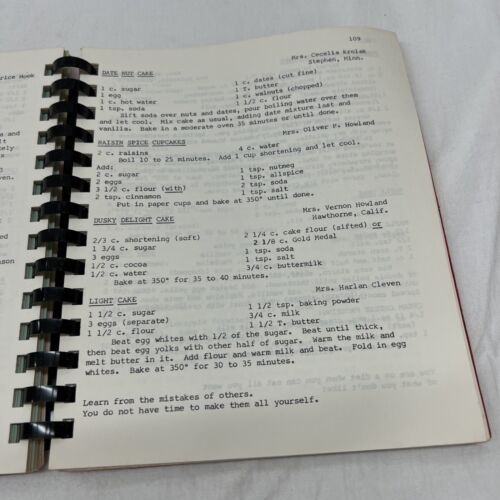 109
Mrs. Cecelia Krolak
Stephen, Minn.
DATE NUT CAKE
1 c. sugar 1 c. dates (cut fine)
1 egg 1 T. butter
1 c. hot water 1 c. walnuts (chopped)
1 tsp. soda 1 1/2 c. flour
Sift soda over nuts and dates, pour boiling water over them
and let cool. Mix cake as usual, adding date mixture last and
vanilla. Bake in a moderate oven 35 minutes or until done.
Mrs. Oliver P. Howland
RAISIN SPICE CUPCAKES
2 c. raisins 4 c. water
Boil 10 to 25 minutes. Add 1 cup shortening and let cool.
Add:
2 c. sugar 1 tsp. nutmeg
2 eggs 1 tsp. allspice
3 1/2 c. flour (with) 2 tsp. soda
2 tsp. cinnamon 1 tsp. salt
Put in paper cups and bake at 350° until done.
Mrs. Vernon Howland
Hawthorne, Calif.
DUSKY DELIGHT CAKE
2/3 c. shortening (soft) 2 1/4 c. cake flour (sifted) or
1 3/4 c. sugar 2 1/8 c. Gold Medal
3 eggs 1 tsp. soda
1/2 c. cocoa 1 tsp. salt
1/2 c. water 3/4 c. buttermilk
Bake at 350° for 35 to 40 minutes.
Mrs. Harlan Cleven
LIGHT CAKE
1 1/2 c. sugar 1 1/2 tsp. baking powder
3 eggs (separate) 3/4 c. milk
1 1/2 c. flour 1 1/2 T. butter
Beat egg whites with 1/2 of the sugar. Beat until thick,
then beat egg yolks with other half of sugar. Warm the milk and
melt butter in it. Add flour and warm milk and beat. Fold in egg
whites. Bake at 350° for 30 to 35 minutes.
Learn from the mistakes of others.
You do not have time to make them all yourself.